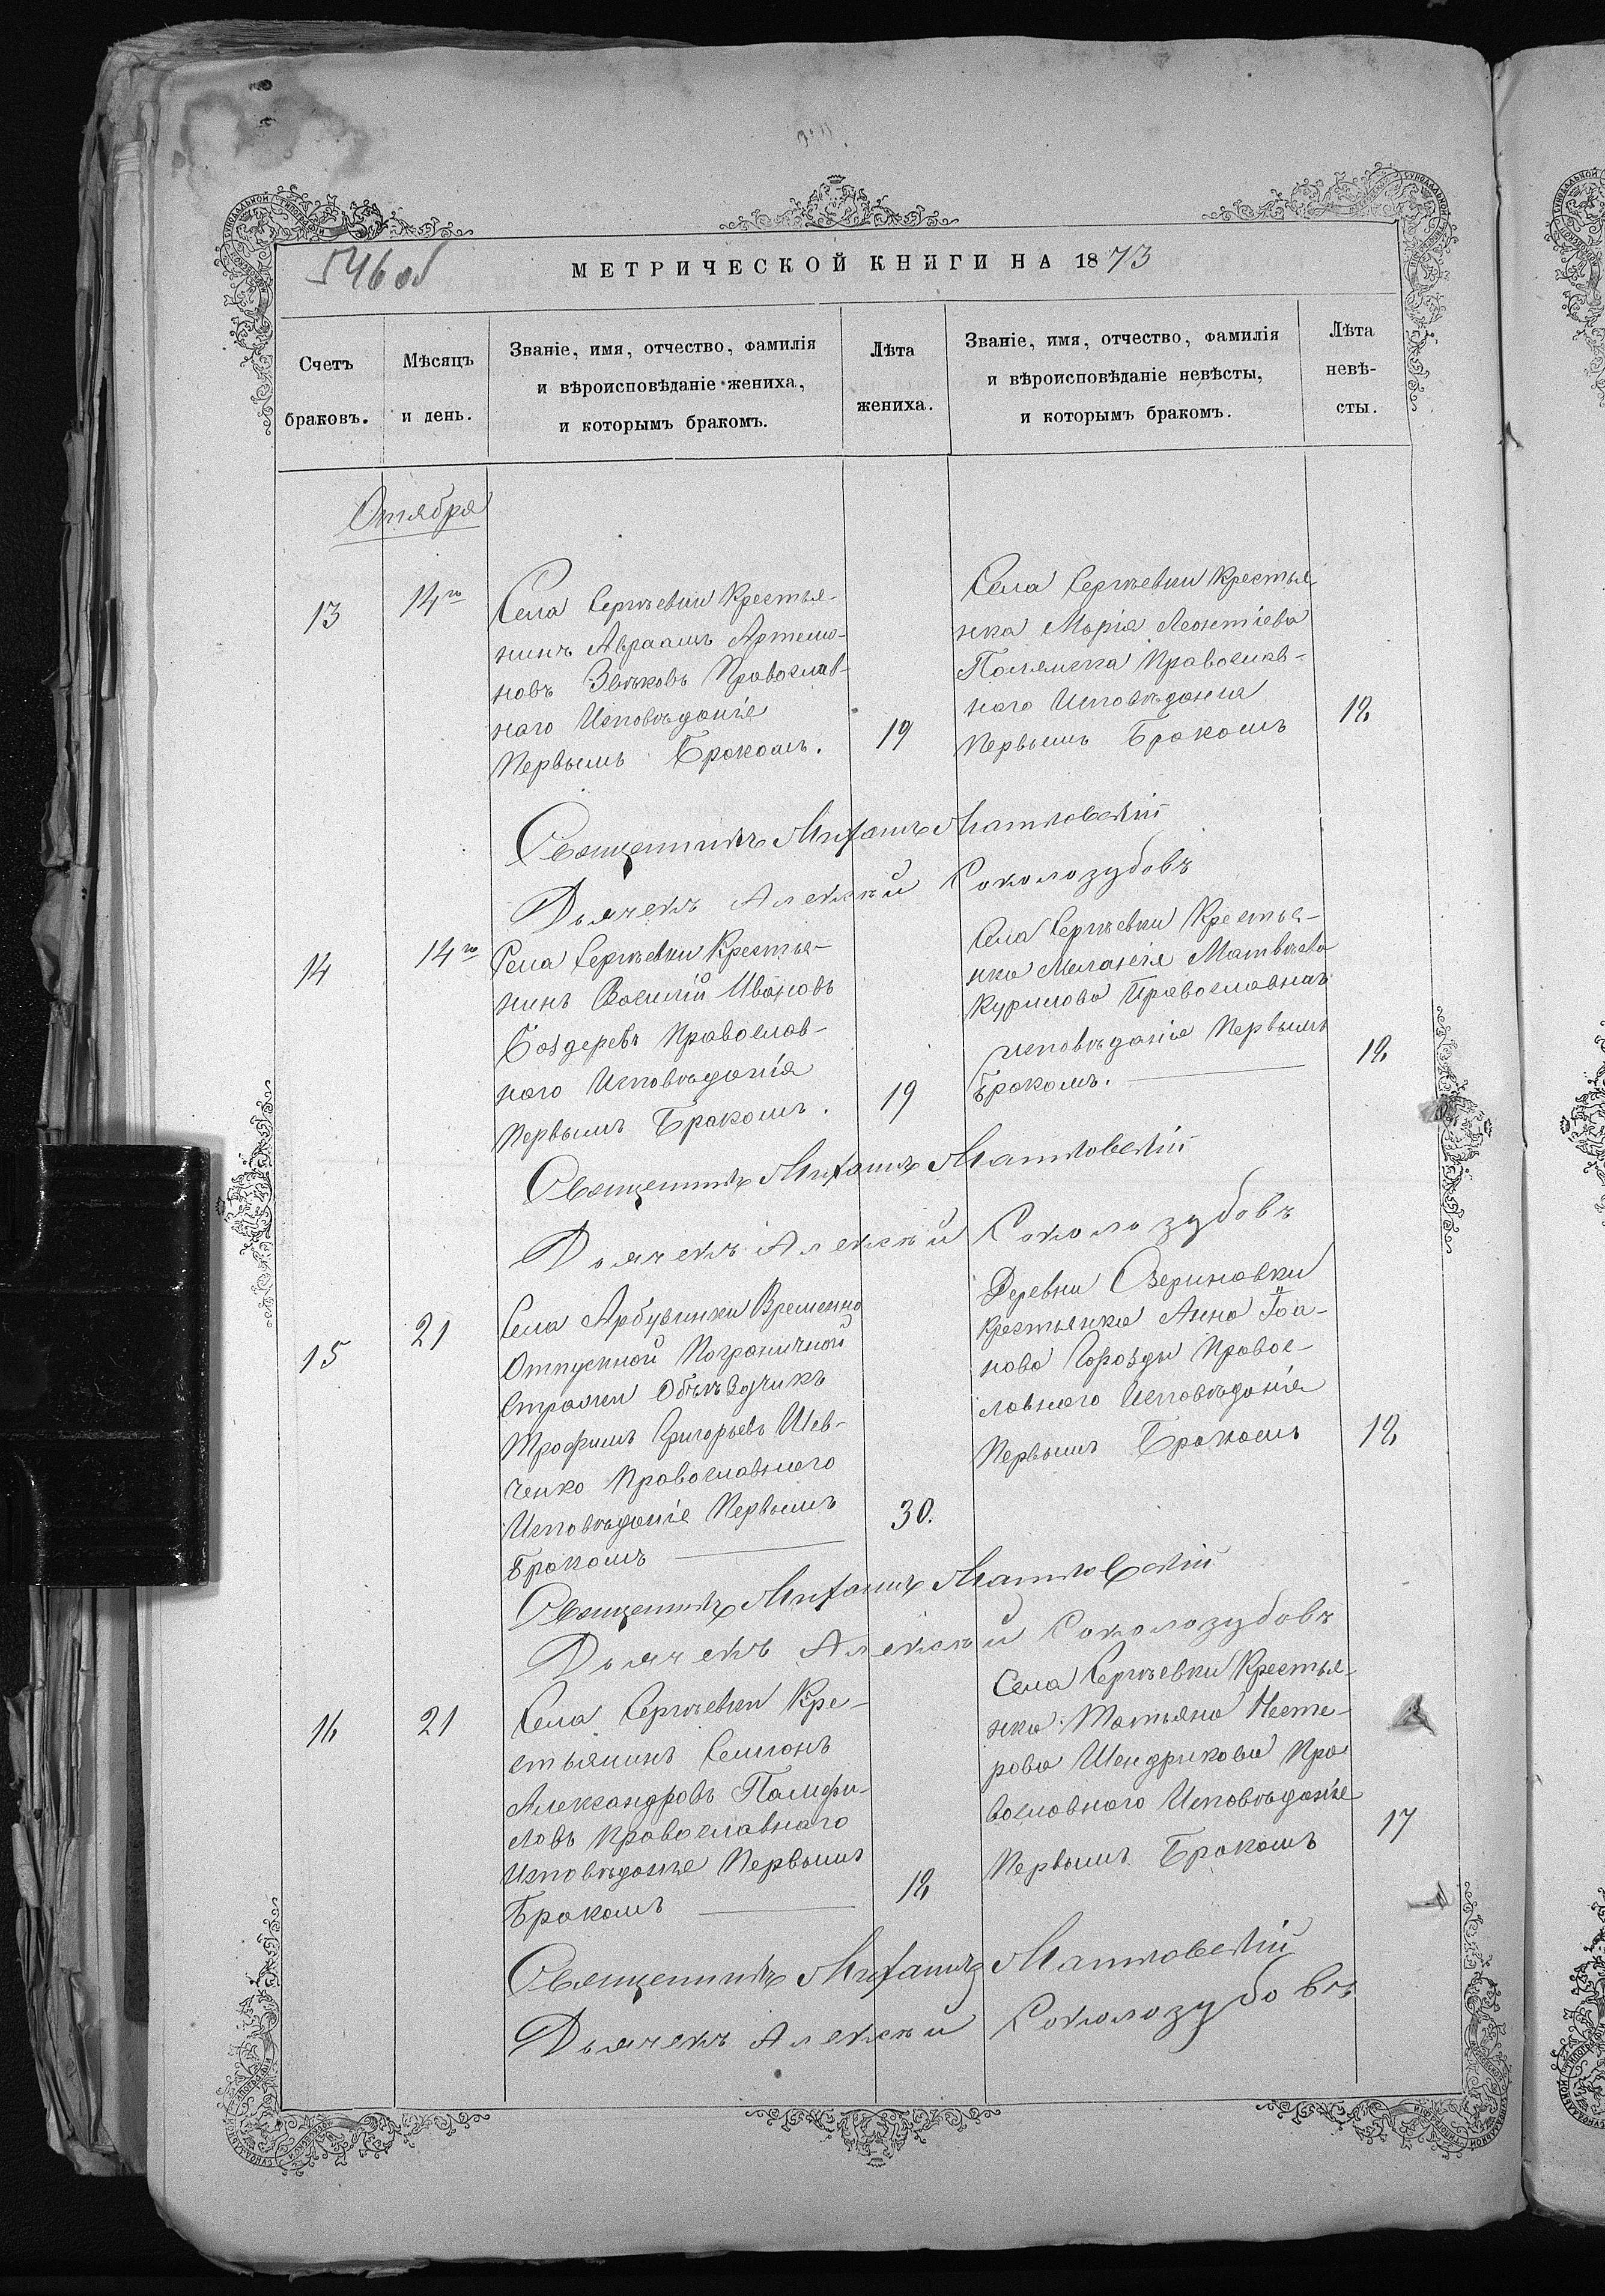 546 об
МЕТРИЧЕСКОЙ КНИГИ НА 1873
Счетъ
браковъ.
Мѣсяцъ
и день.
Званіе, имя, отчество, фамилія
и вѣроисповѣданіе жениха,
и которымъ бракомъ.
Лѣта
жениха.
Званіе, имя, отчество, фамилія
и вѣроисповѣданіе невѣсты,
и которымъ бракомъ.
Лѣта
невѣ-
сты.
Октября
13
14го
Села Сергѣевки Крестья-
нинъ Авраамъ Артемо-
новъ Звѣковъ Православ-
наго Исповѣданіе
Первымъ Бракомъ.
19
Села Сергѣевки Крестья-
нка Марія Леонтіева
Православ-
наго Исповѣдания
Первымъ Бракомъ
18
Священникъ Михаилъ
Дьячекъ Алексѣй Соколозубовъ
14
14го
Села Сергѣевки Крестья-
нинъ Василій Ивановъ
Боздеревъ Православ-
наго Исповѣданія
Первымъ Бракомъ.
19
Села Сергѣевки Крестья-
нка Меланія Матвѣева
Курилова Православнаг
исповѣданіе Первымъ
Бракомъ.
18
Священникъ Михаилъ
Дьячекъ Алексѣй Соколозубовъ
15
21
Села Арбузинки Временно
Отпускной Пограничной
Стражи Объѣздчикъ
Трофимъ Григорьевъ Шев-
ченко Православнаго
Исповѣданіе Первымъ
Бракомъ
30.
Деревни
Крестьянка Анна Іоа-
нова Правос-
лавнаго Исповѣданіе
Первымъ Бракомъ
18
Священникъ Михаилъ
Дьячекъ Алексѣй Соколозубовъ
16
21
Села Сергѣевки Кре-
стьянинъ Симонъ
Александровъ Памфи-
ловъ Православнаго
Исповѣданіе Первымъ
Бракомъ
18
Села Сергѣевки Крестья-
нка Татьяна Несте-
рова Шендрикова Пра
вославного Исповѣданіе
Первымъ Бракомъ
17
Священникъ Михаилъ
Дьячекъ Алексѣй Соколозубовъ